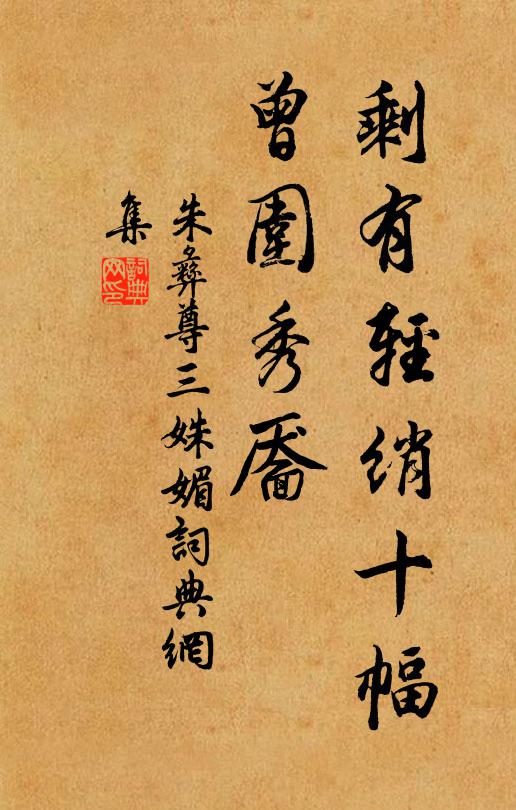 剩有輕綃十幅
曾圍秀靨
朱彝尊三姝媚詞典網
集
詞典
网印